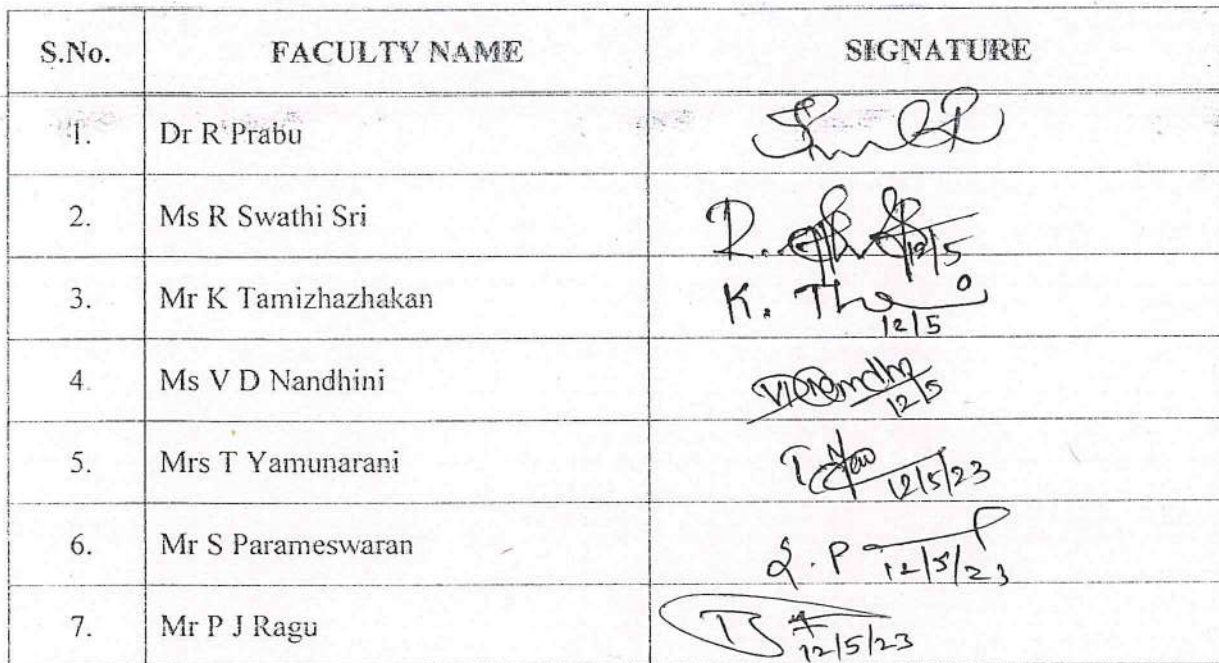 S.No. FACULTY NAME SIGNATURE
1. Dr R Prabu
2. Ms R Swathi Sri R. 12/5
3. Mr K Tamizhazhakan K. 12/5
4. Ms V D Nandhini 12/5
5. Mrs T Yamunarani T. 12/5/23
6. Mr S Parameswaran S. P 12/5/23
7. Mr P J Ragu 12/5/23